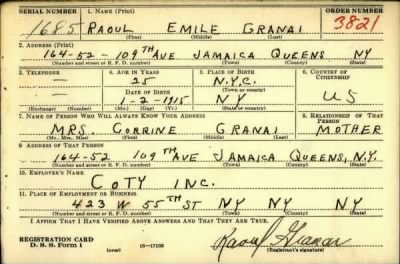 SERIAL NUMBER 1. NAME (Print) ORDER NUMBER
1685 RAOUL EMILE GRANAI 3821
(First) (Middle) (Last)
2. ADDRESS (Print)
164-52 - 109TH AVE JAMAICA QUEENS NY
(Number and street or R. F. D. number) (Town) (County) (State)
3. TELEPHONE 4. AGE IN YEARS 5. PLACE OF BIRTH 6. COUNTRY OF CITIZENSHIP
— 25 N.Y.C.
(Town or county)
DATE OF BIRTH
— 1-2-1915 NY US
(Exchange) (Number) (Mo.) (Day) (Yr.) (State or country)
7. NAME OF PERSON WHO WILL ALWAYS KNOW YOUR ADDRESS 8. RELATIONSHIP OF THAT PERSON
MRS. CORRINE GRANAI MOTHER
(Mr., Mrs., Miss) (First) (Middle) (Last)
9. ADDRESS OF THAT PERSON
164-52 109TH AVE JAMAICA QUEENS, N.Y.
(Number and street or R. F. D. number) (Town) (County) (State)
10. EMPLOYER'S NAME
COTY INC.
11. PLACE OF EMPLOYMENT OR BUSINESS
423 W 55TH ST NY NY NY
(Number and street or R. F. D. number) (Town) (County) (State)
I AFFIRM THAT I HAVE VERIFIED ABOVE ANSWERS AND THAT THEY ARE TRUE.
REGISTRATION CARD
D. S. S. FORM 1 (over) 16—17105
Raoul Granai
(Registrant's signature)